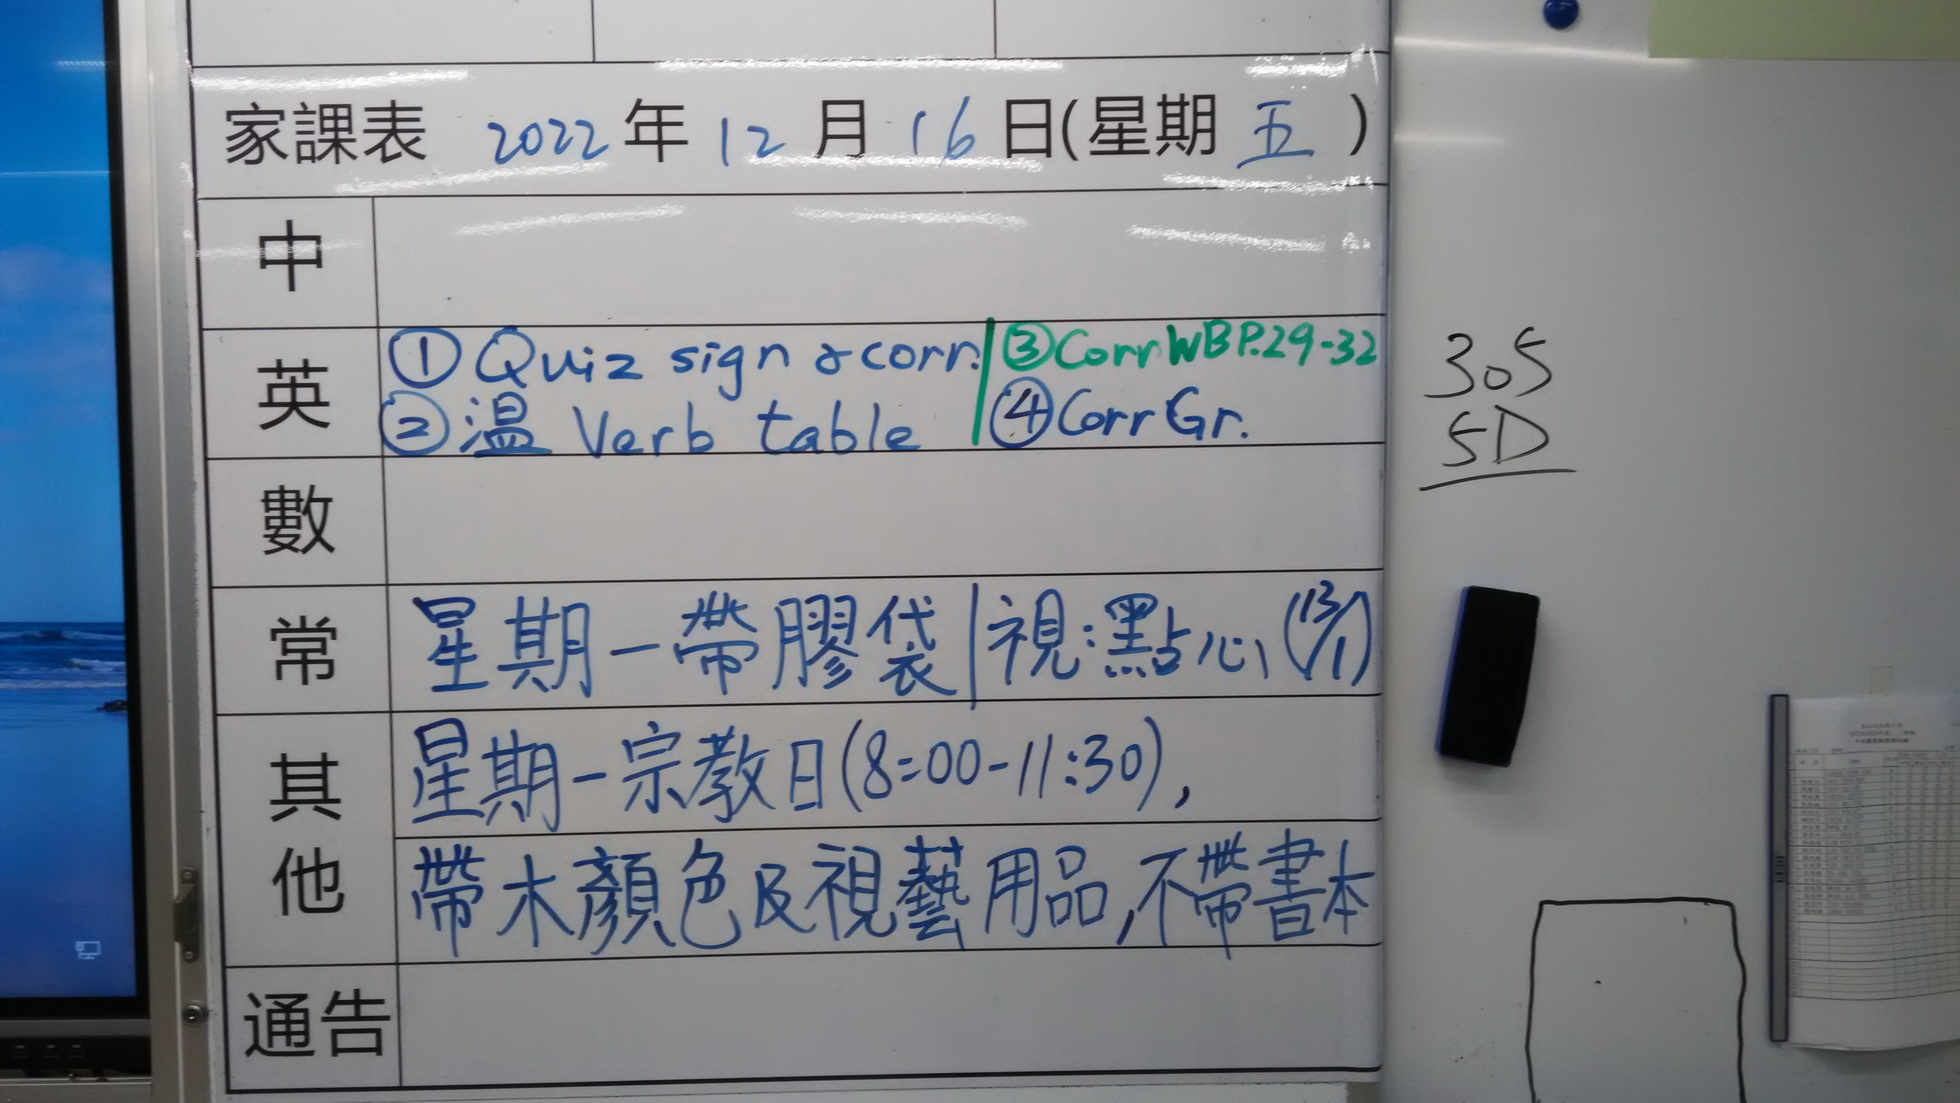 家課表 2022年12月16日(星期五)
中
英 ① Quiz sign & corr. ③ Corr WB P.29-32
② 温 Verb table ④ Corr Gr.
數
常 星期一帶膠袋 視:點心 (13/1)
其他 星期一宗教日(8:00-11:30),
帶木顏色及視藝用品,不帶書本
通告
305
5D